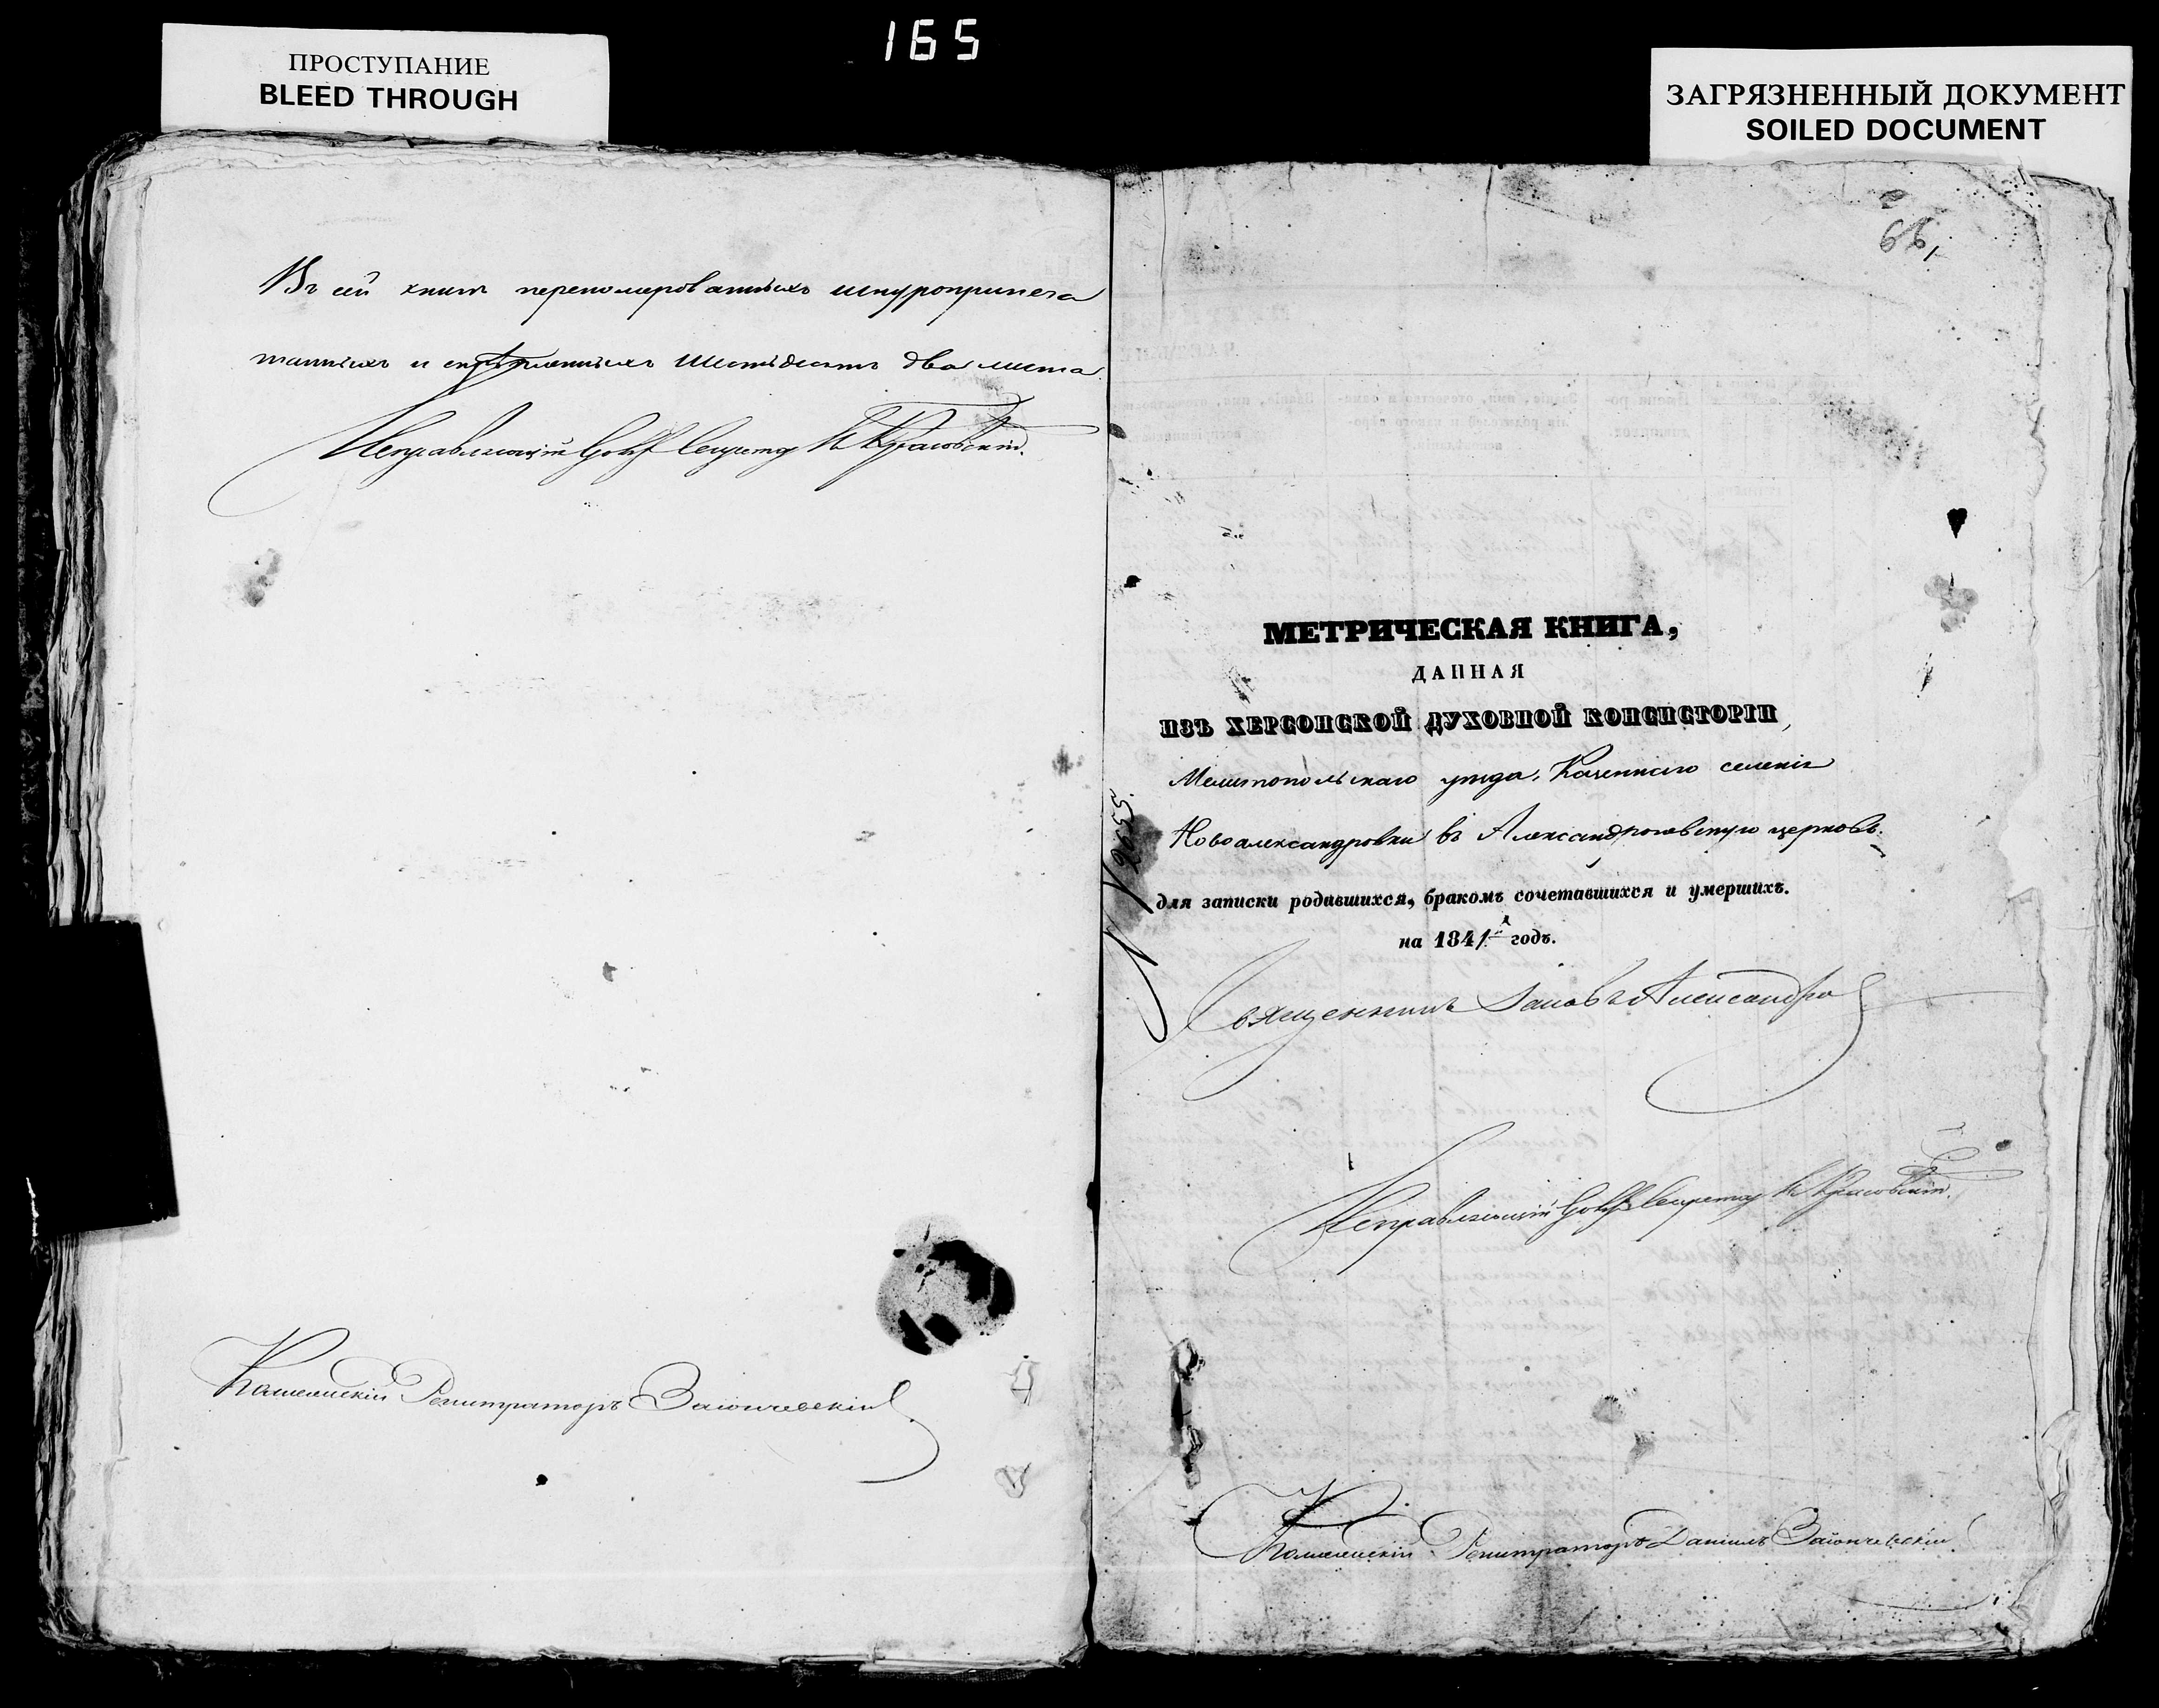 165
ПРОСТУПАНИЕ
BLEED THROUGH
ЗАГРЯЗНЕННЫЙ ДОКУМЕНТ
SOILED DOCUMENT
Въ сей книгѣ переномерованныхъ шнуропричета
танныхъ и скрѣпленныхъ шестьдесятъ два листа.
Исправляющій Секретар К Красовскій.
Коллежскій Регистраторъ Заіончевскій
66,
МЕТРИЧЕСКАЯ КНИГА,
ДАННАЯ
ИЗЪ ХЕРСОНСКОЙ ДУХОВНОЙ КОНСИСТОРІИ,
Мелитопольскаго уѣзда, Казеннаго селенія
Новоалександровки въ Александроневскую церковь.
для записки родившихся, бракомъ сочетавшихся и умершихъ.
на 1841й годъ.
N 2055.
Священникъ Іаковъ Александро
Исправляющій Секретар К Красовскій.
Коллежскій Регистраторъ Даніилъ Заіончевскій.